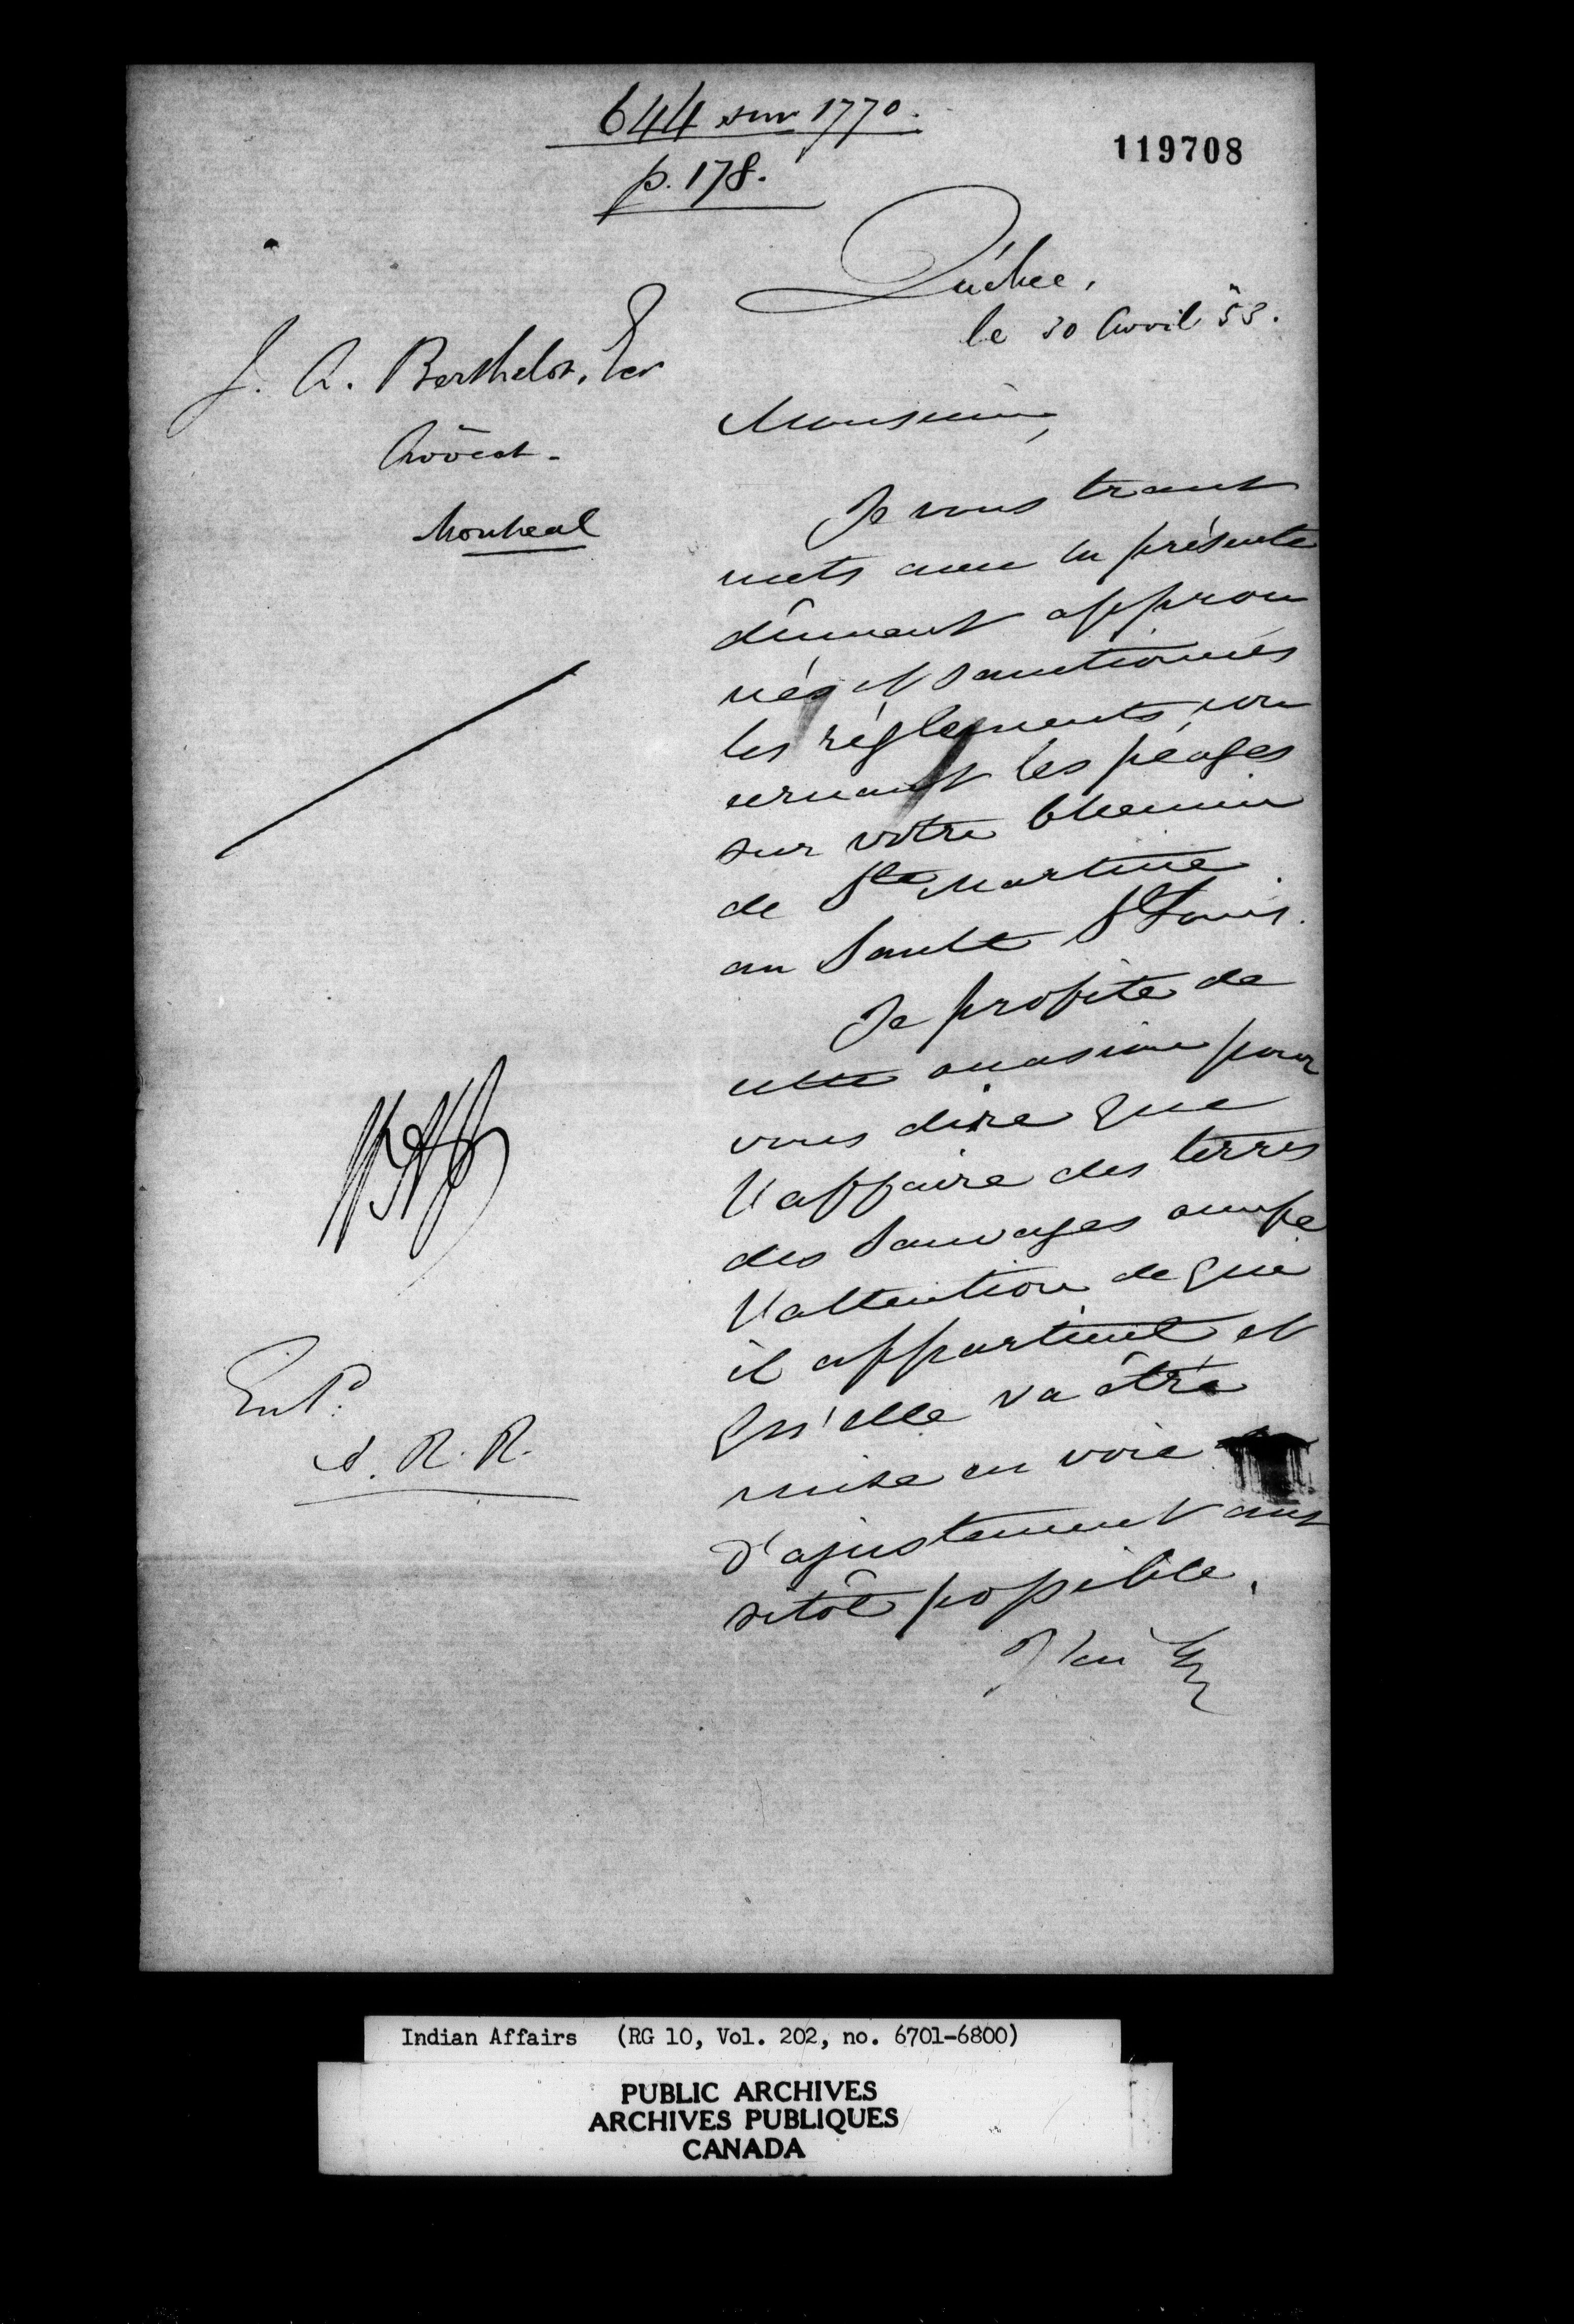 644 sur 1770.
p. 178.
119708
Québec,
le 30 Avril 53.
J. A. Berthelot, Ecr
Avocat.
Montreal
Monsieur,
Je vous trans
mets avec la présente
dûment approu
vés et sanctionnés
les réglements con
cernant les péages
sur votre Chemin
de Ste Martine
au Sault St Louis.
Je profite de
cette occasion pour
vous dire que
l'affaire des terres
des Sauvages occupe
l'attention de qui
il appartient et
qu'elle va être
mise en voie
d'ajustement aus
sitôt possible.
J'ai &c
Entd.
d. R. R.
Indian Affairs (RG 10, Vol. 202, no. 6701-6800)
PUBLIC ARCHIVES
ARCHIVES PUBLIQUES
CANADA